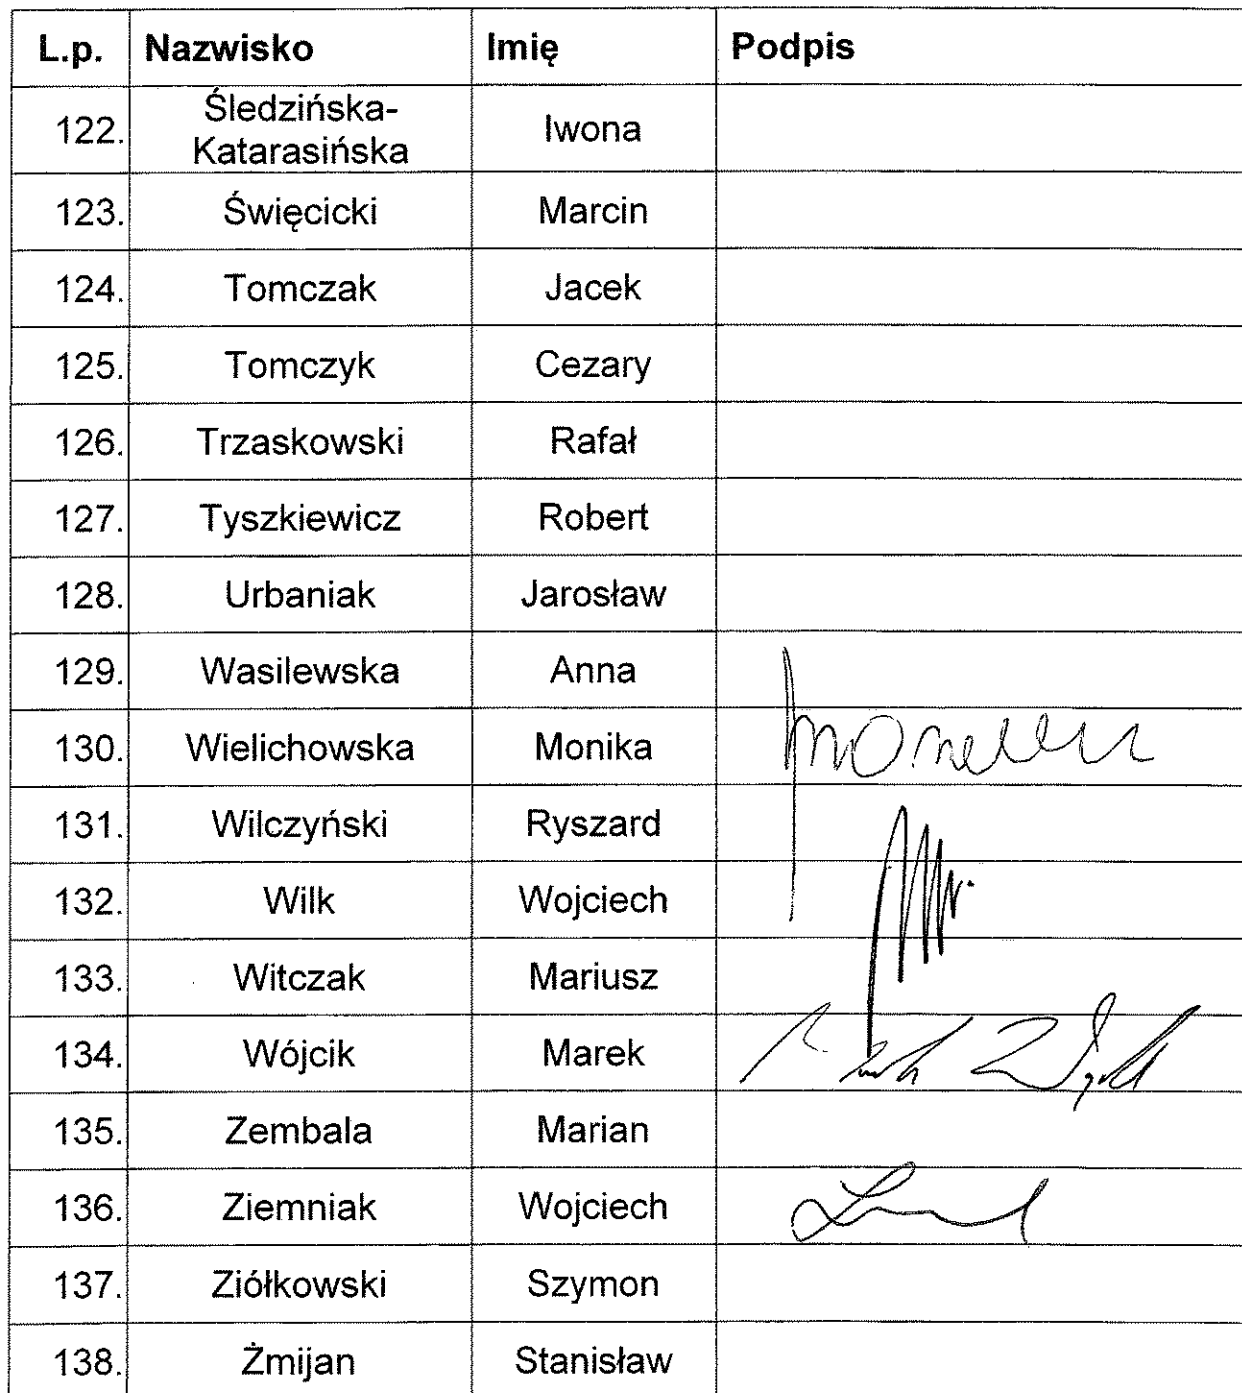 L.p. Nazwisko Imię Podpis
122. Śledzińska-
Katarasińska Iwona
123. Święcicki Marcin
124. Tomczak Jacek
125. Tomczyk Cezary
126. Trzaskowski Rafał
127. Tyszkiewicz Robert
128. Urbaniak Jarosław
129. Wasilewska Anna
130. Wielichowska Monika
131. Wilczyński Ryszard
132. Wilk Wojciech
133. Witczak Mariusz
134. Wójcik Marek
135. Zembala Marian
136. Ziemniak Wojciech
137. Ziółkowski Szymon
138. Żmijan Stanisław